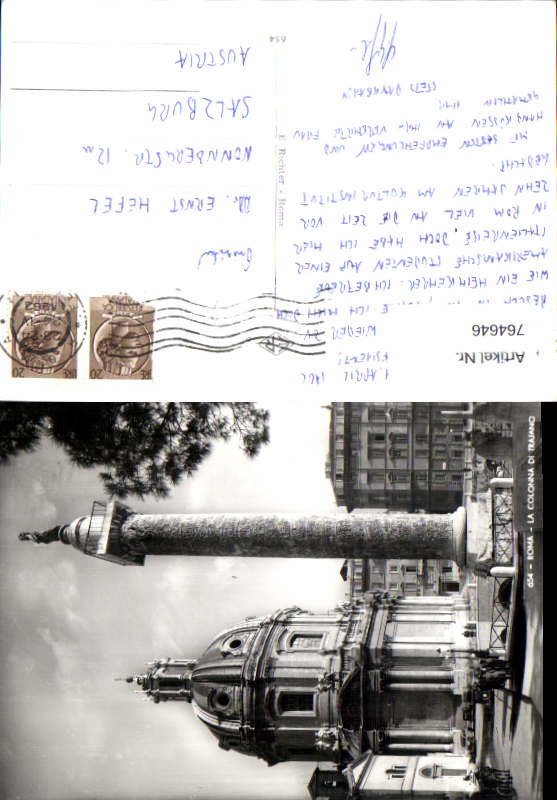 Artikel Nr.
764646
1. APRIL 1962
ESIMENT!
WIEDER ZU
BESUCH IN E ICH MICH DOCH
WIE EIN HEIMKEHRER. ICH BETREUE
AMERIKANISCHE STUDENTEN AUF EINER
ITALIENREISE, DOCH HABE ICH HIER
IN ROM VIEL AN DIE ZEIT VOR
ZEHN JAHREN AM KULTURINSTITUT
GEDACHT.
MIT BESTEN EMPFEHLUNGEN UND
HANDKÜSSEN AN IHRE VEREHRTE FRAU
GEMAHLIN IHR
STETS DANKBARER
E. Richter - Roma
654
DR. ERNST HEFEL
NONNBERGSTR. 12
SALZBURG
AUSTRIA
654 - ROMA - LA COLONNA DI TRAIANO